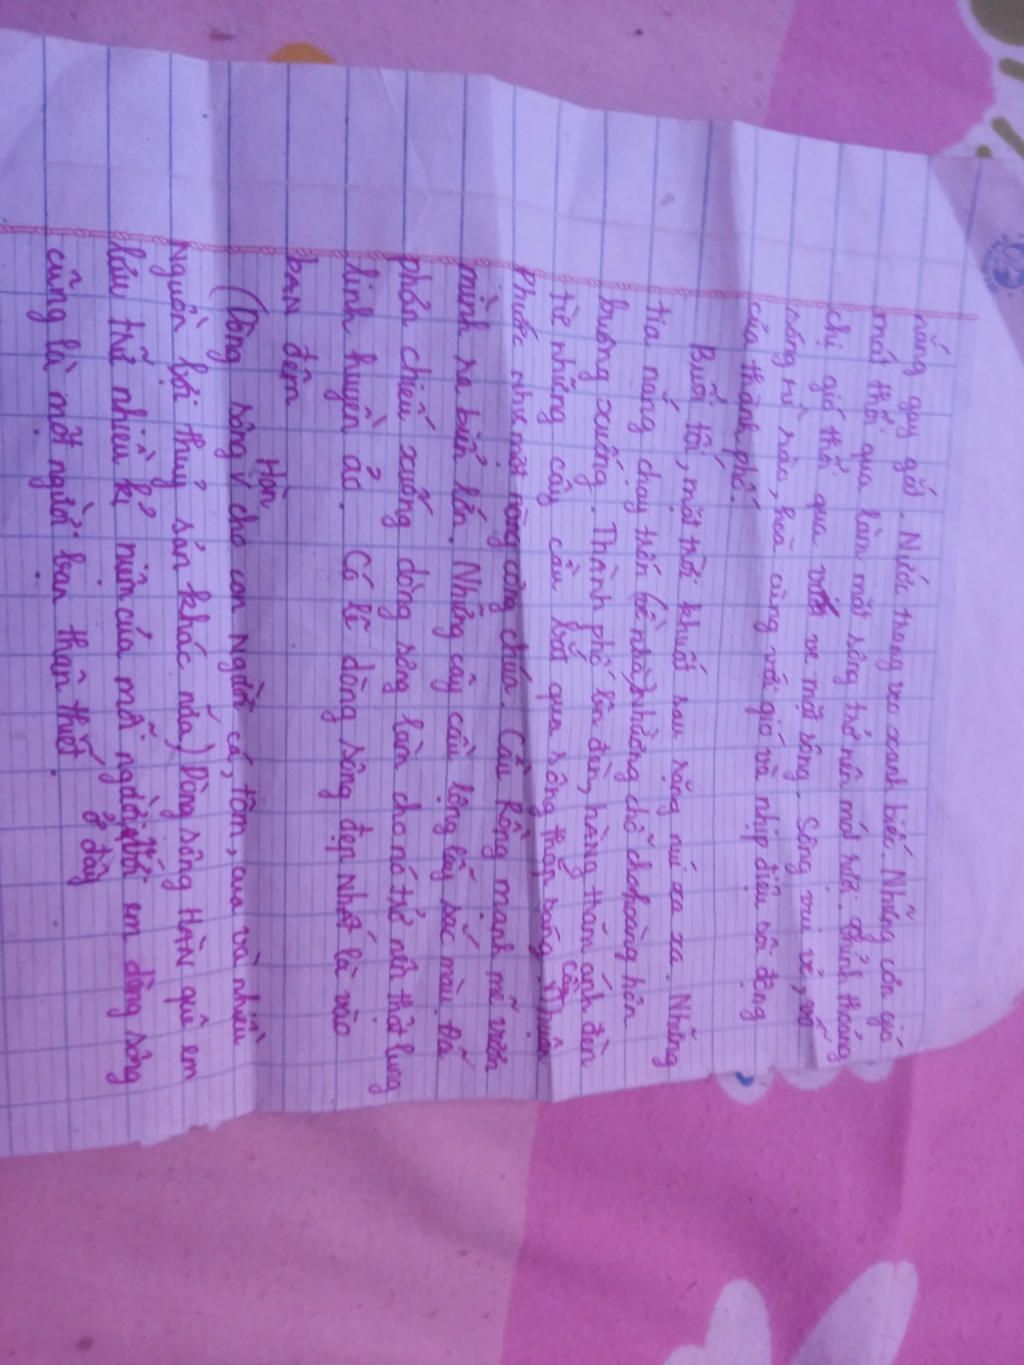 nắng gay gắt. Nước trong veo xanh biếc. Những cơn gió
mát thổi qua làm mặt sông trở nên mới. thỉnh thoảng
chị gió thổi qua ve mặt sông. Sông vui vẻ, vỗ
sóng rì rào, hoà cùng với gió và nhịp điệu sôi động
của thành phố.
Buổi tối, mặt trời khuất sau rặng núi xa xa. Những
tia nắng chạy trốn (về nhà) nhường chỗ cho hoàng hôn
buông xuống. Thành phố lên đèn, hàng trăm ánh đèn
từ những cây cầu bắt qua sông thắp sáng. Cầu Thuận
Phước như một nàng công chúa. Cầu Rồng mạnh mẽ vươn
mình ra biển lớn. Những cây cầu lộng lẫy sắc màu đã
phản chiếu xuống dòng sông làm cho nó trở nên thật lung
linh huyền ảo. Có lẽ dòng sông đẹp nhất là vào
ban đêm
Hàn
(Dòng sông cho con Người cá, tôm, cua và nhiều
Nguồn lợi thuỷ sản khác nữa) Dòng sông Hàn quê em
lưu trữ nhiều kỉ niệm của mỗi người em dòng sông
ở đây
cũng là một người bạn thân thiết.